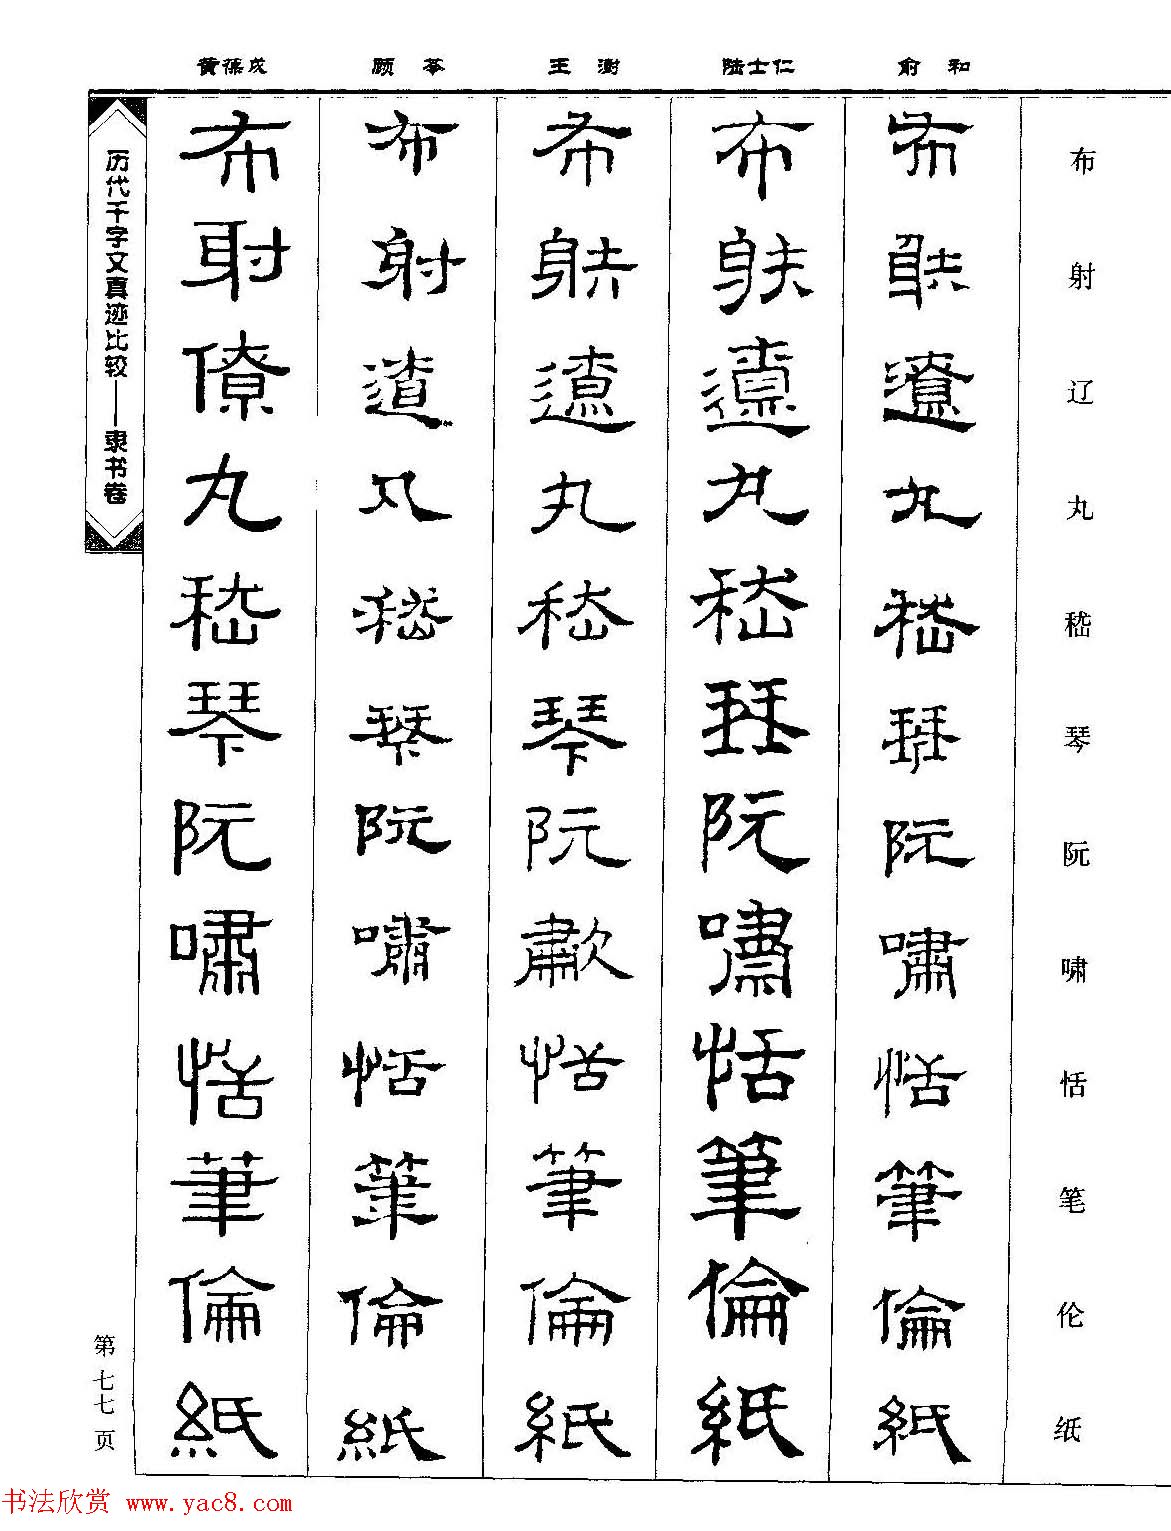 黄葆戉 顾苓 王澍 陆士仁 俞和
布射辽丸嵇琴阮啸恬笔伦纸
布射遼丸嵇琴阮嘯恬筆倫紙
布射遼丸嵇琴阮嘯恬筆倫紙
布射遼丸嵇琴阮歗恬筆倫紙
布射遼丸嵇琴阮嘯恬筆倫紙
布射僚丸嵇琴阮嘯恬筆倫紙
历代千字文真迹比较——隶书卷
第七七页
书法欣赏 www.yac8.com